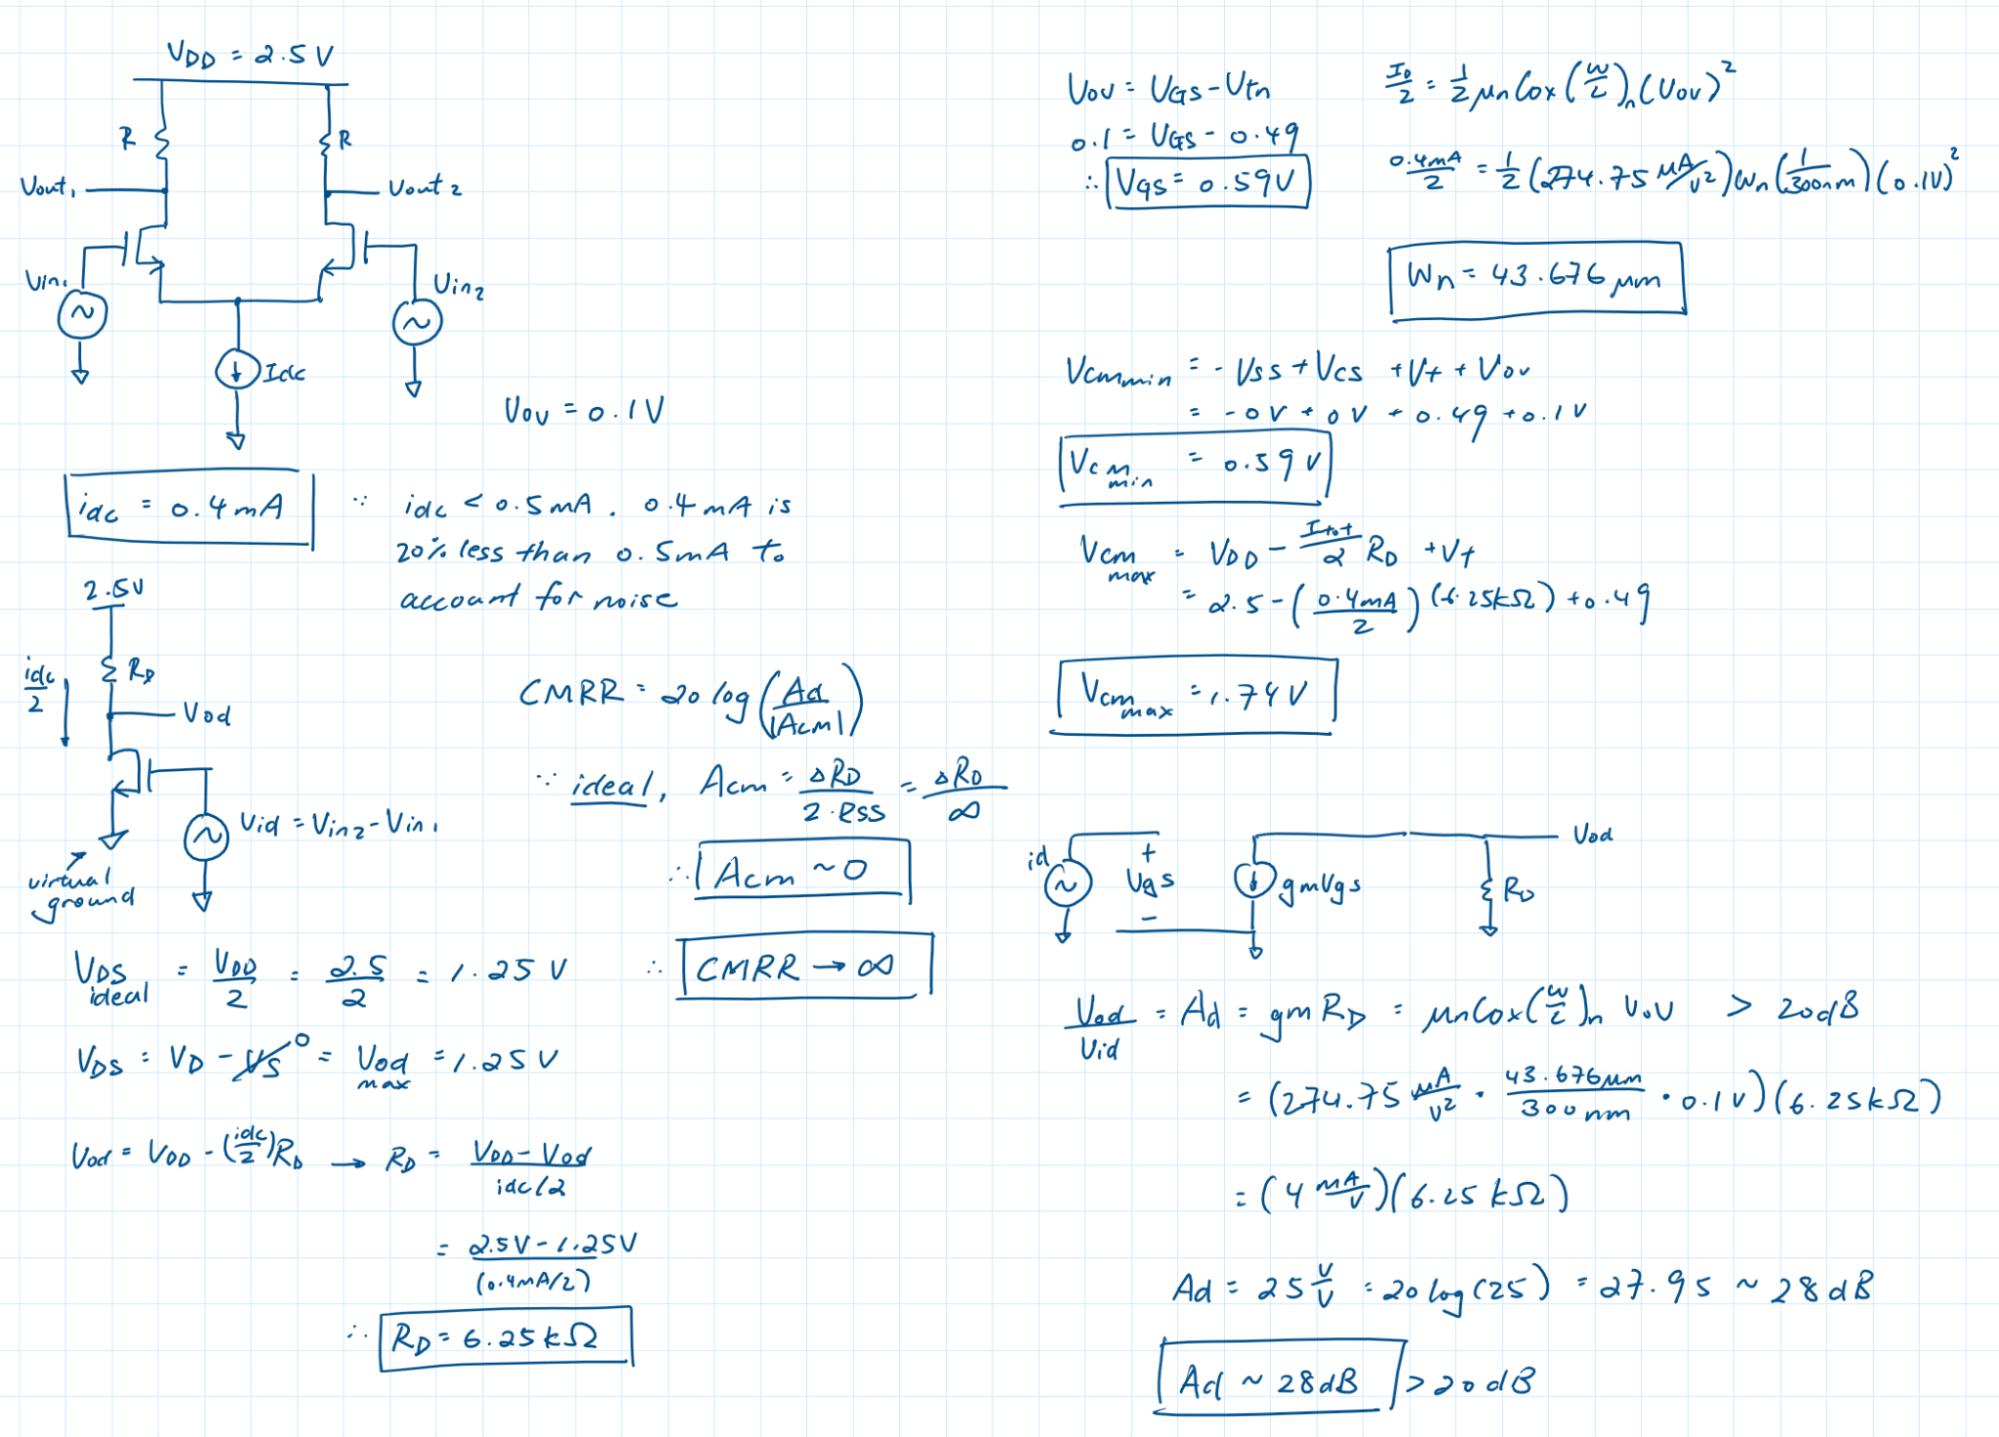 V_DD = 2.5 V
R
R
Vout₁
Vout₂
Vin₁
Vin₂
Idc
Vov = 0.1V
idc = 0.4mA
∵ idc < 0.5mA. 0.4mA is
20% less than 0.5mA to
account for noise
2.5V
idc/2
R_D
Vod
Vid = Vin₂ - Vin₁
virtual
ground
CMRR = 20 log(Ad/|Acm|)
∵ ideal, Acm = ΔRD/(2·RSS) = ΔRD/∞
∴ Acm ~ 0
∴ CMRR → ∞
VDS ideal = VDD/2 = 2.5/2 = 1.25 V
VDS = VD - VS⁰ = Vod max = 1.25 V
Vod = VDD - (idc/2)RD → RD = (VDD - Vod)/(idc/2)
= (2.5V - 1.25V)/(0.4mA/2)
∴ RD = 6.25kΩ
Vov = VGS - Vtn
0.1 = VGS - 0.49
∴ VGS = 0.59V
ID/2 = 1/2 μnCox(W/L)n(Vov)²
0.4mA/2 = 1/2 (274.75 μA/V²)Wn(1/300nm)(0.1V)²
Wn = 43.676 μm
Vcm min = -VSS + VCS + Vt + Vov
= -0V + 0V + 0.49 + 0.1V
Vcm min = 0.59V
Vcm max = VDD - Itot/2 RD + Vt
= 2.5 - (0.4mA/2)(6.25kΩ) + 0.49
Vcm max = 1.74V
id
+
Vgs
-
gmVgs
RD
Vod
Vod/Vid = Ad = gmRD = μnCox(W/L)n Vov > 20dB
= (274.75 μA/V² · 43.676μm/300nm · 0.1V)(6.25kΩ)
= (4 mA/V)(6.25kΩ)
Ad = 25 V/V = 20log(25) = 27.95 ~ 28dB
Ad ~ 28dB > 20dB